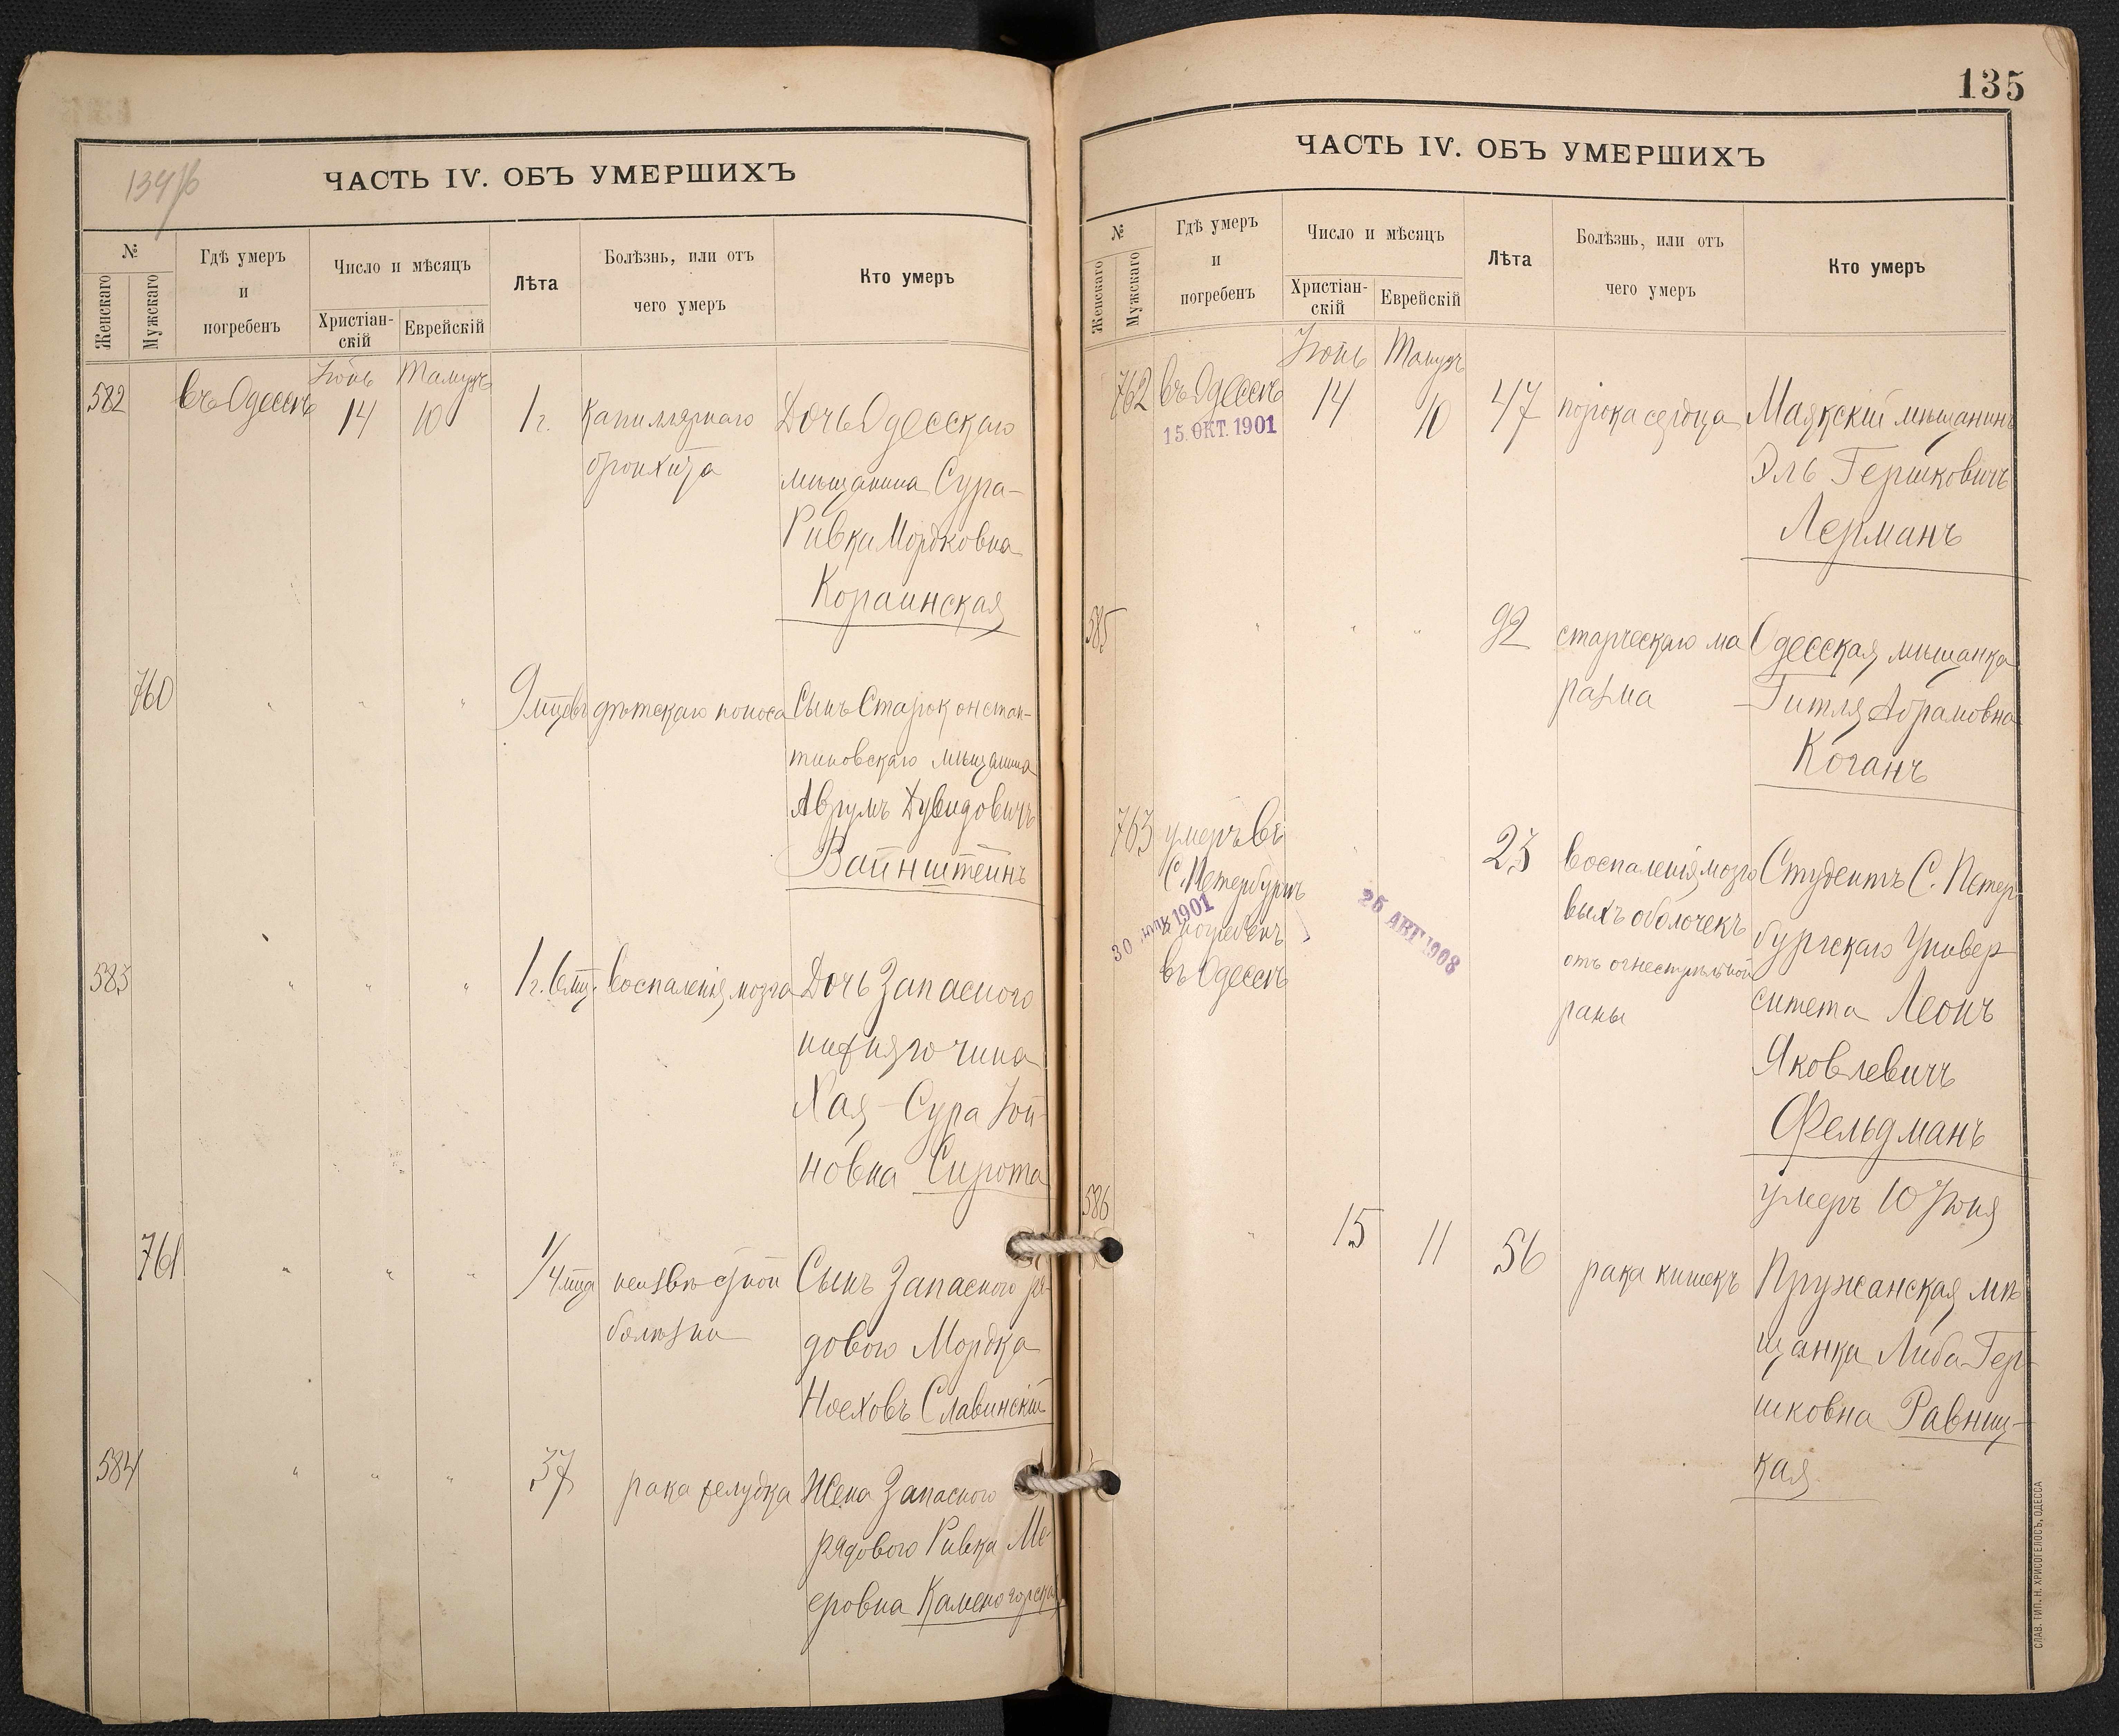 134/б
ЧАСТЬ IV. ОБЪ УМЕРШИХЪ
№
Женскаго
Мужскаго
Гдѣ умеръ
и
погребенъ
Число и мѣсяцъ
Христіан-
скій
Еврейскій
Лѣта
Болѣзнь, или отъ
чего умеръ
Кто умеръ
Іюнь Тамузъ
582 въ Одессѣ 14 10 1 г. капиллярнаго Дочь Одесскаго
бронхита мѣщанина Сура-
Ривка Мордковна
Кораинская
760 " " " 9 мѣцевъ дѣтскаго поноса Сынъ Староконстан-
тиновскаго мѣщанина
Аврумъ Дувидовичъ
Вайнштейнъ
583 " " " 1 г. 6 мц. воспаленія мозга Дочь Запасного
нижняго чина
Хая-Сура
новна Сирота
761 " " " 1/4 мцa неизвѣстной Сынъ Запасного ря-
болѣзни дового Мордка
Ноеховъ Славинскій
584 " " " 37 рака желудка Жена Запасного
рядового Ривка Ме-
еровна Каменогорская
135
ЧАСТЬ IV. ОБЪ УМЕРШИХЪ
№
Женскаго
Мужскаго
Гдѣ умеръ
и
погребенъ
Число и мѣсяцъ
Христіан-
скій
Еврейскій
Лѣта
Болѣзнь, или отъ
чего умеръ
Кто умеръ
Іюнь Тамузъ
762 въ Одессѣ 14 10 47 порока сердца Маякскій мѣщанинъ
15. ОКТ. 1901
Эль Гершковичъ
Лерманъ
585 " " " 92 старческаго ма Одесская мѣщанка
разма Гитля Абрамовна
Коганъ
763 умеръ въ " 23 воспаленія мозго Студентъ С. Петер
С. Петербургѣ выхъ оболочекъ бургскаго Универ
30 ІЮЛЯ 1901
25 АВГ 1908
и погребенъ отъ огнестрѣльной ситета Леонъ
въ Одессѣ раны Яковлевичъ
Фельдманъ
умеръ 10 Іюня
586 " 15 11 56 рака кишекъ Пружанская мѣ
щанка Либа Гер-
шковна Равниц-
кая
СЛАВ. ТИП. Н. ХРИСОГЕЛОСЪ, ОДЕССА